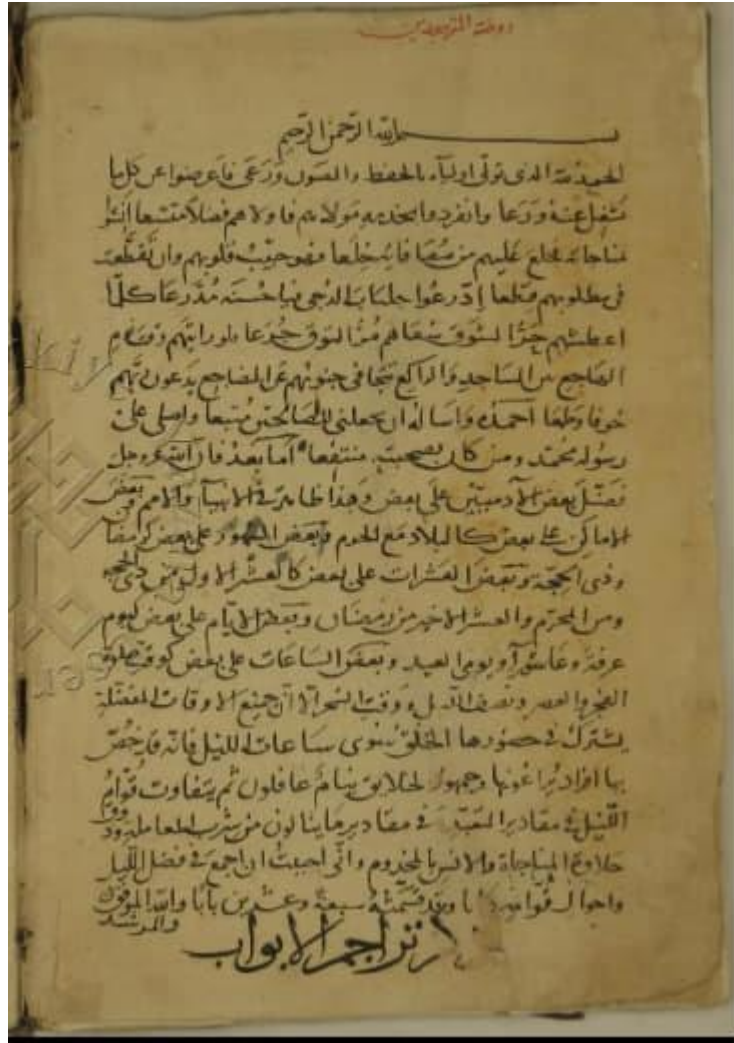 روضة المتهجدين
بسم الله الرحمن الرحيم
الحمد لله الذى تولى اولياءه بالحفظ والصون ورعى فاعرضوا عن كل ما
شغل عنه ودعا وانفردوا بخدمة مولاهم فاولاهم فضلا متسعا
مناجاته فخلع عليهم من خلعا فهو حبيب قلوبهم وان تقطعت
فى مطلوبهم قطعا ادرعوا جلباب الدجى فيا حسنه مدرعا كلما
اعطشهم حر الشوق سقاهم جرعا فلو رايتهم وقد قام
الهاجع بين الساجد والراكع تتجافى جنوبهم عن المضاجع يدعون ربهم
خوفا وطمعا احمده واساله ان يجعلنى للصالحين متبعا واصلى على
رسوله محمد ومن كان بصحبته منتفعا اما بعد فان الله عز وجل
فضل بعض الآدميين على بعض وهذا ظاهر فى الانبيآ والامم وبعض
الاماكن على بعض كالبلاد مع الحرم وبعض الشهور على بعض كرمضان
وذى الحجة وبعض العشرات على بعض كالعشر الاول من ذى الحجه
ومن المحرم والعشر الاخير من رمضان وبعض الايام على بعض كيوم
عرفة وعاشورآ ويومى العيد وبعض الساعات على بعض كوقت صلوة
الفجر والعصر ونصف الليل ووقت السحر الا ان جميع الاوقات المفضلة
يشترك فى حضورها الخلق سوى ساعات الليل فانه قد خص
بها افراد يراعونها وجمهور الخلايق نيام غافلون ثم يتفاوت قوام
الليل فى مقادير التعبد وفى مقادير ما ينالون من شرب المعاملة وذوق
حلاوة المناجاة والانس بالمخدوم وانى احببت ان اجمع فى فضل الليل
واحوال قوامه وقد قسمته سبعة وعشرين بابا والله الموفق
والمرشد
تراجم الابواب